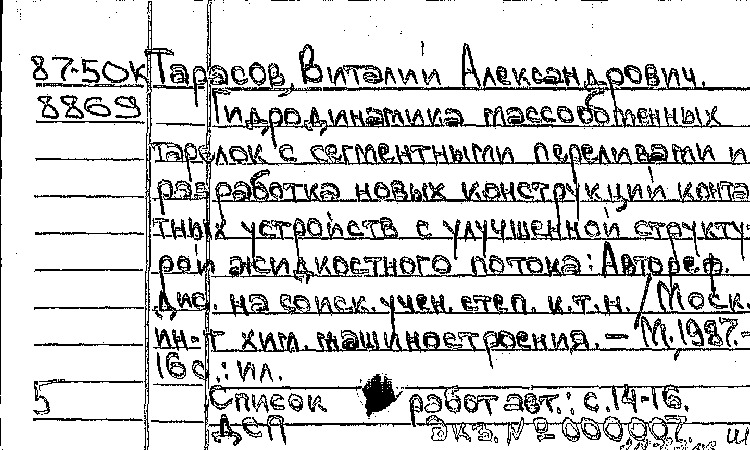 87-50к Тарасов, Виталий Александрович.
8869 Гидродинамика массообменных
тарелок с сегментными переливами и
разработка новых конструкций конта
тных устройств с улучшенной структу-
рой жидкостного потока: Автореф.
Дис. на соиск. учен. степ. к.т.н. / Моск.
ин-т хим. машиностроения. - М., 1987. -
16 с.: ил.
5 Список работ авт.: с. 14-16.
ДСП Экз. № 000007.